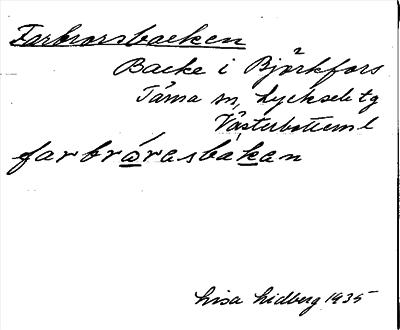 Farbrorsbacken
Backe i Björkfors
Tärna sn, Lycksele tg
Västerbottens l
farbrórasbakan
Lisa Lidberg 1935